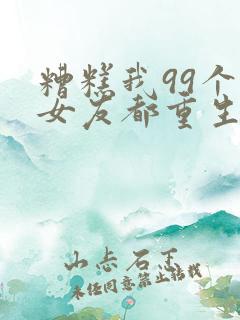 糟糕我99个
女友都重生
山志石王
未经同意禁止转载